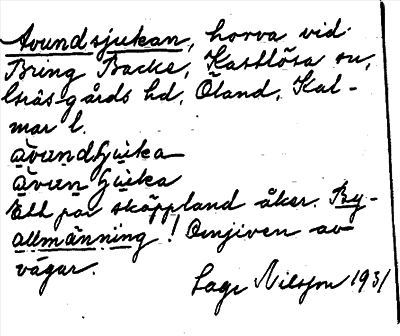 Avundsjukan, horva vid
Bring Backe, Kastlösa sn,
Gräsgårds hd, Öland, Kal-
mar l.
avundſjuka
avun ſjuka
Ett par skäppland åker. By-
allmänning! Omgiven av
vägar.
Lage Nilsson 1931